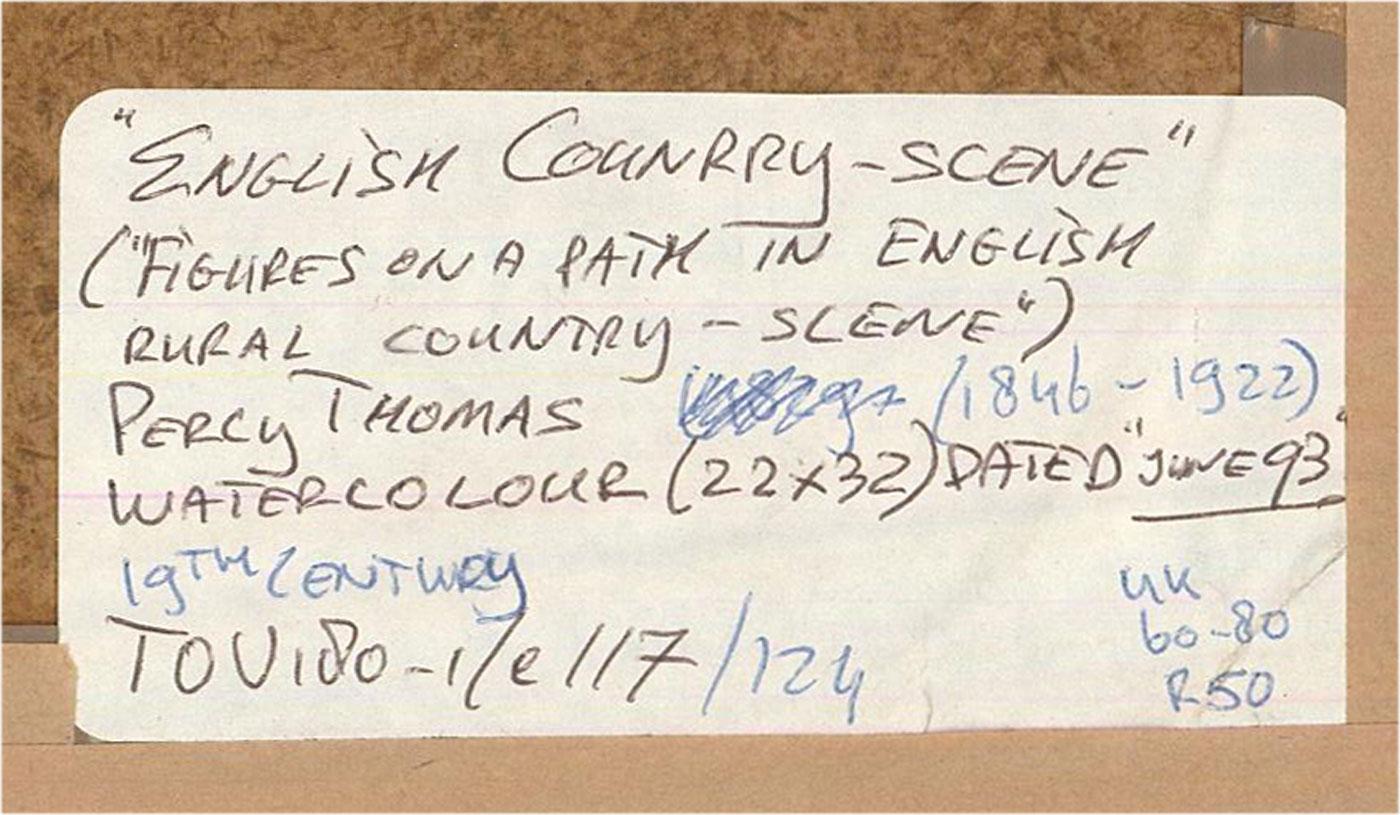 "ENGLISH COUNRRY-SCENE"
("FIGURES ON A PATH IN ENGLISH
RURAL COUNTRY-SCENE")
PERCY THOMAS (1846-1922)
WATERCOLOUR (22x32) DATED "JUNE 93"
19TH CENTURY
UK
60-80
TOVI80-1/e 117/124
R50